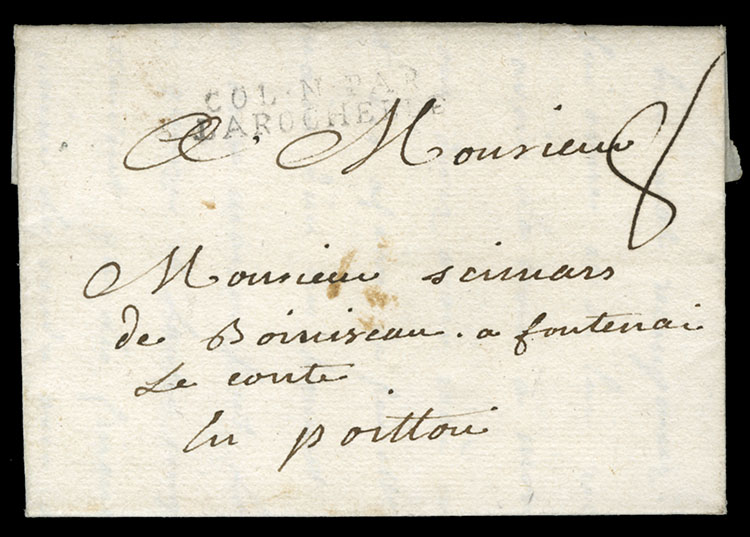 COL·N·PAR
LAROCHELLE
A Monsieur 8
Monsieur seimars
de Boiniseau . a fontenai
Le conte
En poittou